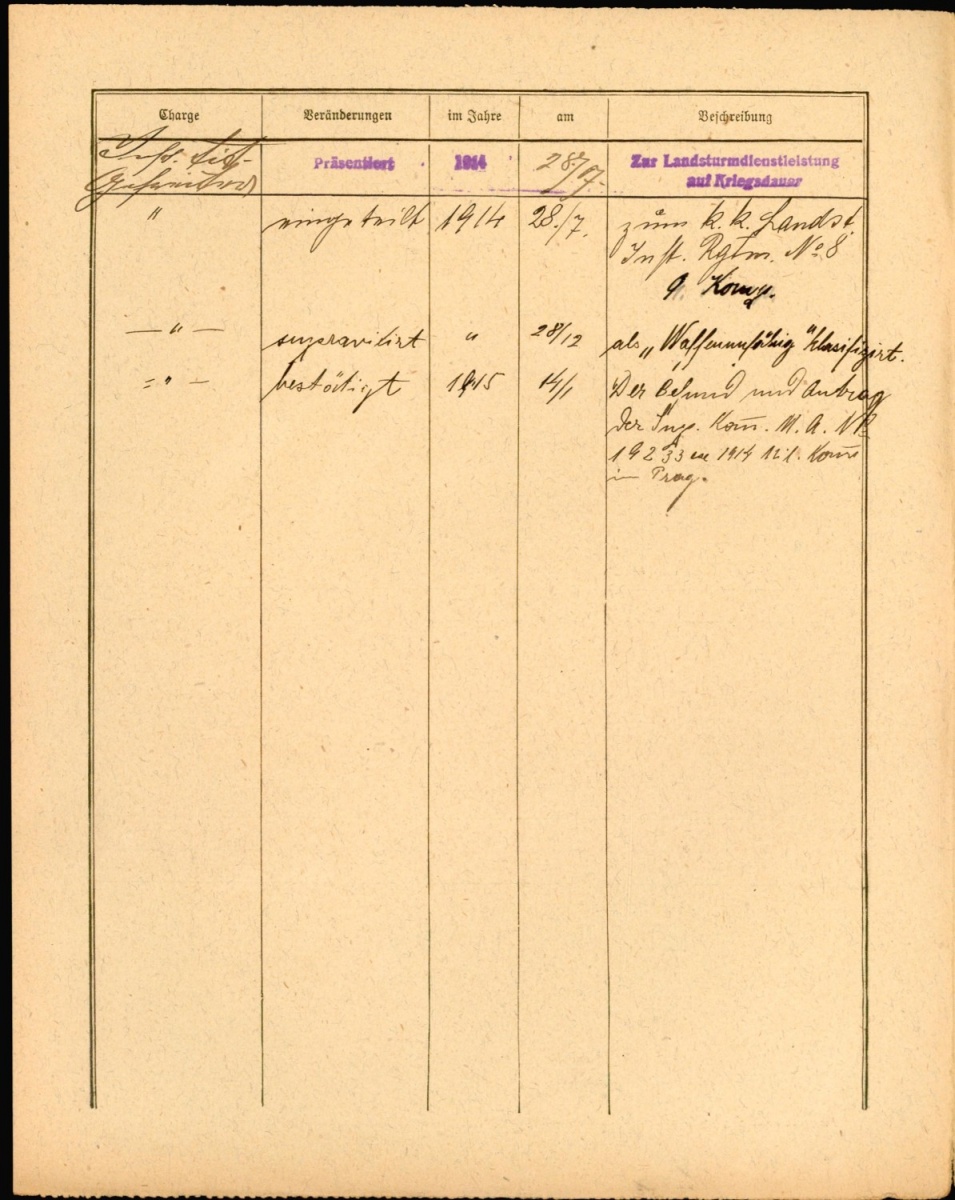 Charge Veränderungen im Jahre am Beschreibung
Inf. Tit-
Gefreiter
Präsentiert 1914 28/7. Zur Landsturmdienstleistung
auf Kriegsdauer
" eingeteilt 1914 28./7. zum k. k. Landst.
Inft. Rgtm. No 8
9. Komp.
— " — superarbitrirt " 28/12 als „Waffenunfähig" klasifizirt.
— " — bestätigt 1915 14/1 Der Befund und Antrag
der Sup. Kom. M. A. No
19233 ex 1914 Mil. Kom
in Prag.